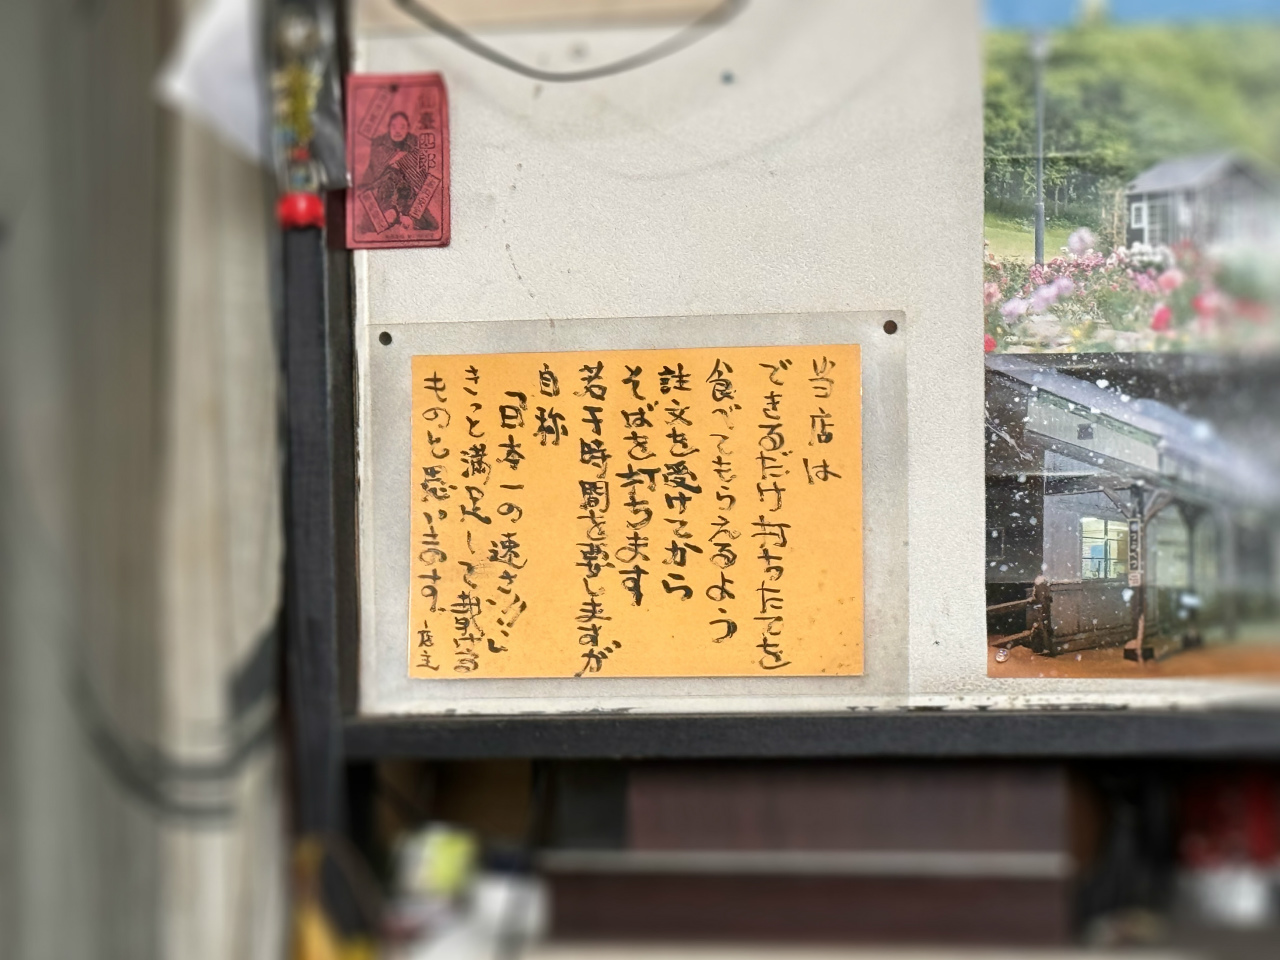 当店は
できるだけ打ちたてを
食べてもらえるよう
註文を受けてから
そばを打ちます
若干時間を要しますが
自称
「日本一の速さ!!」に
きっと満足して戴ける
ものと思います 店主
仙臺四郎